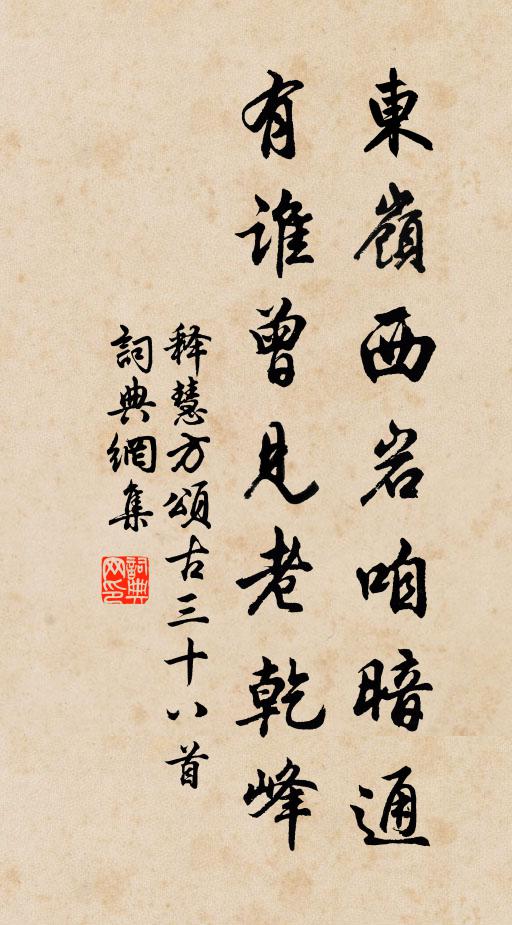 東嶺西岩咱暗通
有誰曾見老乾峰
释慧方頌古三十八首
詞典網集
詞典网印